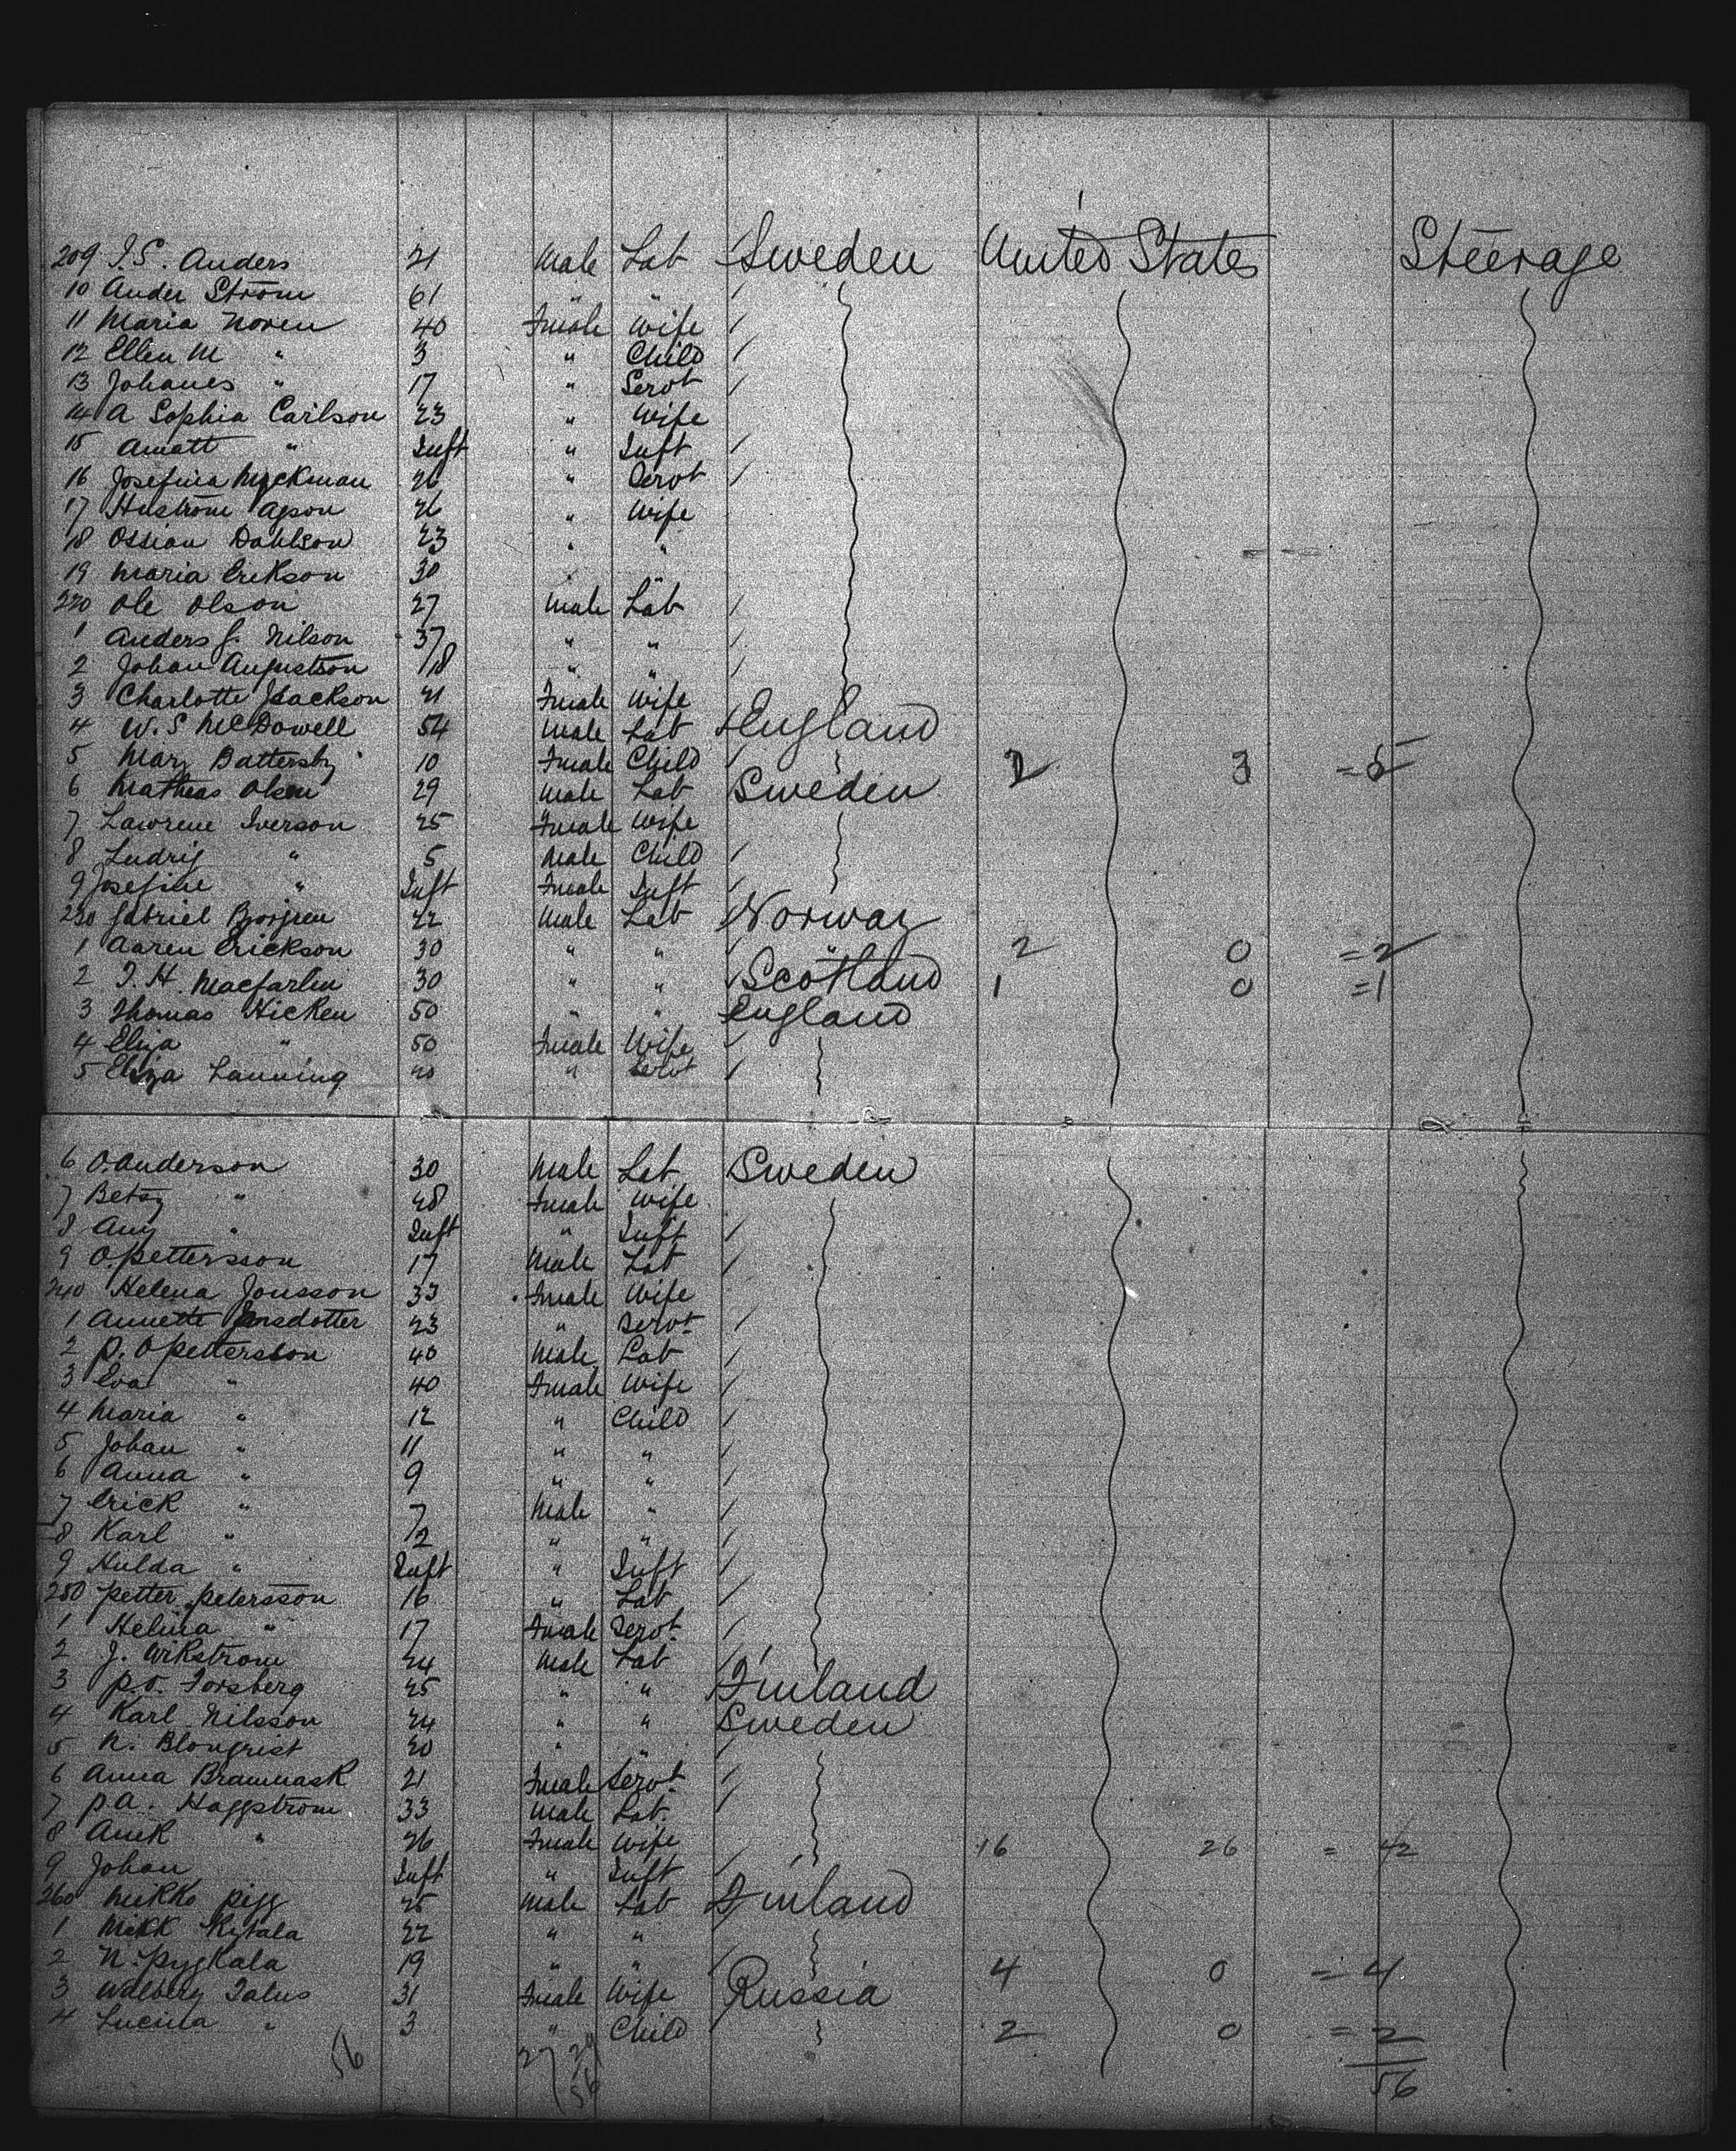 209 J.S. Anders 21 Male Lab Sweden United States Steerage
10 Ander Strom 61 " "
11 Maria Noren 40 Fmale Wife
12 Ellen M " 3 " Child
13 Johanes " 17 " Servt
14 A Sophia Carlson 23 " Wife
15 Amatt " Inft " Inft
16 Josefina Nyckman 26 " Servt
17 Hustrom Agson 26 " Wife
18 Ossian Dahlson 23 " "
19 Maria Erikson 30 " "
220 Ole Olson 27 Male Lab
1 Anders J. Nilson 37 " "
2 Johan Augustson 18 " "
3 Charlotte Jsackson 21 Fmale Wife
4 W.S McDowell 54 Male Lab England
5 Mary Battersby 10 Fmale Child 2 3 = 5
6 Mathias Olsen 29 Male Lab Sweden
7 Lawrene Iverson 25 Fmale Wife
8 Ludvig " 5 Male Child
9 Josefine " Inft Fmale Inft
230 Gabriel 22 Male Lab Norway
1 Aaren Erickson 30 " " " 2 0 = 2
2 J.H. Macfarlin 30 " " Scotland 1 0 = 1
3 Thomas Hicken 50 " " England
4 Eliza " 50 Fmale Wife
5 Eliza Lanning 20 " Servt
6 O. Anderson 30 Male Lab Sweden
7 Betsy " 28 Fmale Wife
8 Any " Inft " Inft
9 O. Pettersson 17 Male Lab
240 Helena Jonsson 33 Fmale Wife
1 Annette Jonsdotter 23 " Servt
2 P. O Pettersson 40 Male Lab
3 Eva " 40 Fmale Wife
4 Maria " 12 " Child
5 Johan " 11 " "
6 Anna " 9 " "
7 Erick " 7 Male "
8 Karl " 2 " "
9 Hulda " Inft " Inft
250 Petter Petersson 16 " Lab
1 Helina " 17 Fmale Servt
2 J. Wikstrom 24 Male Lab
3 P.O. Forsberg 25 " " Finland
4 Karl Nilsson 24 " " Sweden
5 N. Blonqrist 20 " "
6 Anna Bramnask 21 Fmale Servt
7 P.A. Haggstrom 33 Male Lab
8 Anek " 26 Fmale Wife 16 26 = 42
9 Johan Inft " Inft
260 Mikko Pigg 25 Male Lab Finland
1 Mikk Kytala 22 " "
2 N. Pygkala 19 " " 4 0 = 4
3 Walberg Talus 31 Fmale Wife Russia
4 Lucina " 3 " Child 2 0 = 2
56 27 29 56 56